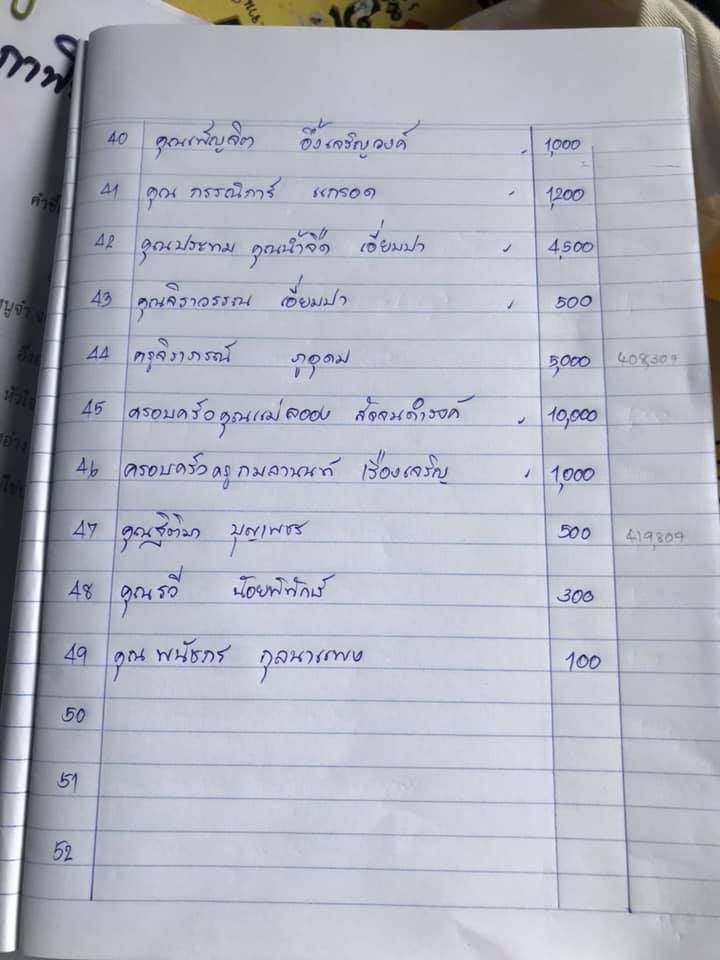 40 คุณเพ็ญจิต อึ้งเจริญวงค์ 1,000
41 คุณ กรรณิการ์ แกรอด 1,200
42 คุณประทม คุณน้ำจืด เอี่ยมปา 4,500
43 คุณจิราวรรณ เอี่ยมปา 500
44 ครูจิราภรณ์ ภูอุดม 5,000 408,309
45 ครอบครัวคุณแม่ลออง สัจจนดำรงค์ 10,000
46 ครอบครัวครูกมลานนท์ เรืองเจริญ 1,000
47 คุณฐิติมา บุญเพชร 500 419,809
48 คุณรวี น้อยพิทักษ์ 300
49 คุณ พนัชกร กุลนาแพง 100
50
51
52